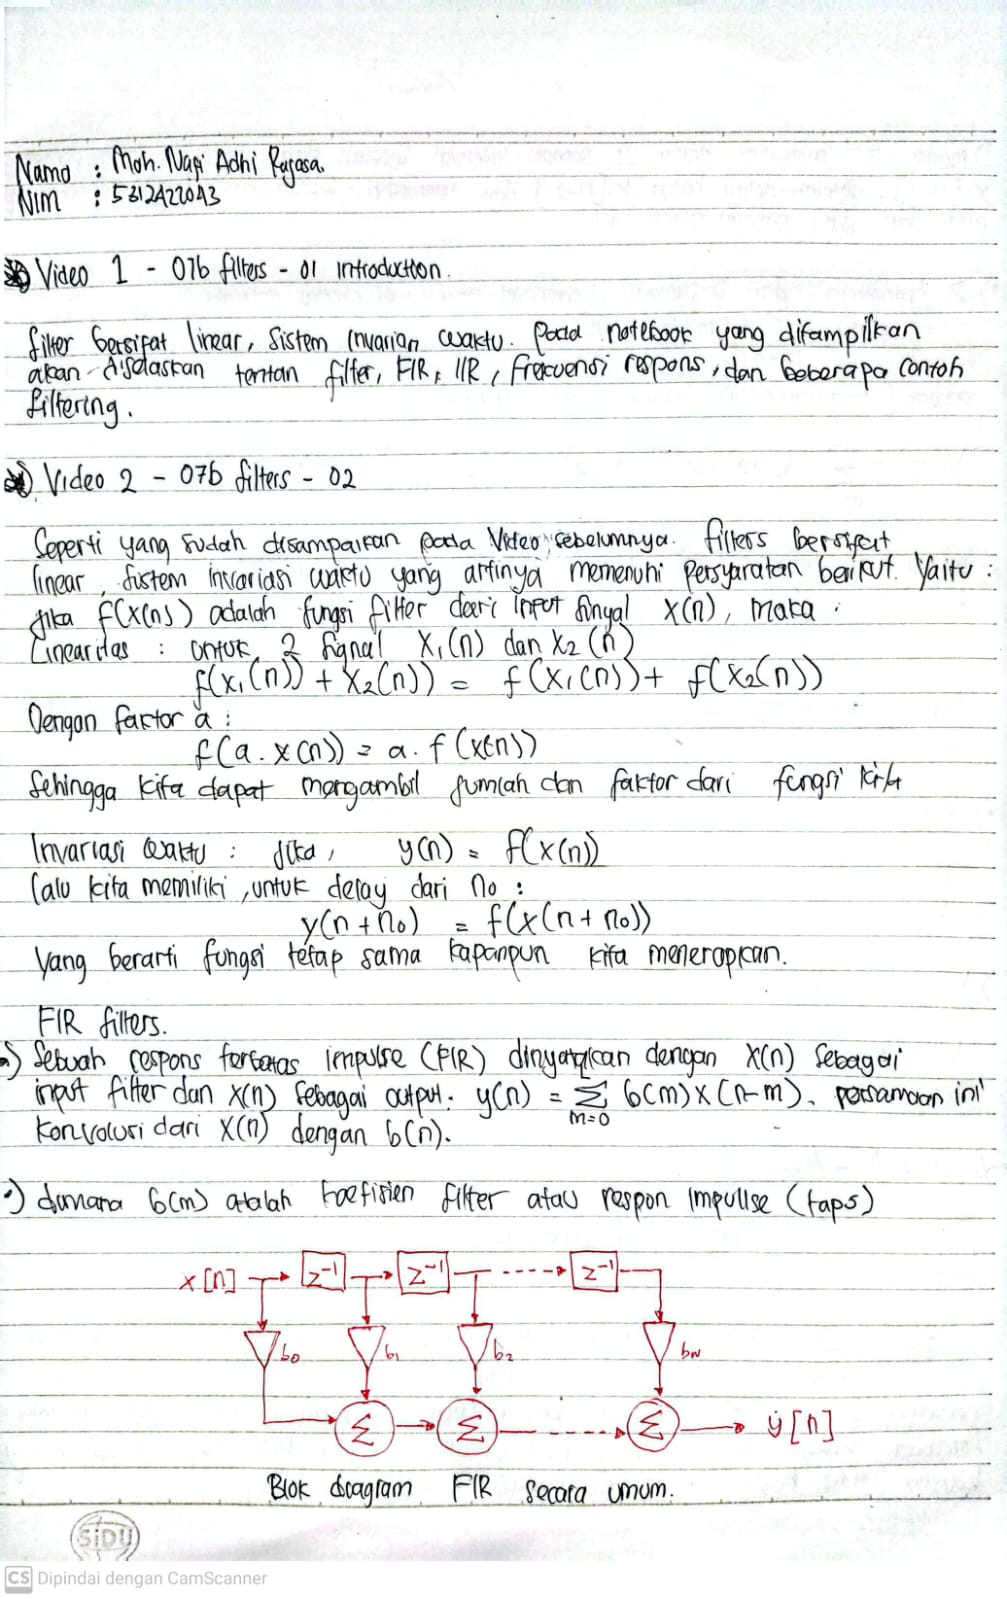 Nama : Moh. Nagi Adhi Rajasa
Nim : 5312422043
Video 1 - 07b filters - 01 introduction.
filter bersifat linear, sistem Invarian waktu. pada notebook yang ditampilkan
akan dijelaskan tentan filter, FIR, IIR, frekuensi respons, dan beberapa contoh
filtering.
Video 2 - 07b filters - 02
Seperti yang sudah disampaikan pada Video sebelumnya. filters bersifat
linear, sistem invariasi waktu yang artinya memenuhi persyaratan berikut. Yaitu :
Jika f(x(n)) adalah fungsi filter dari input sinyal x(n), maka :
Linearitas : untuk 2 signal X₁(n) dan X₂(n)
f(x₁(n)) + X₂(n)) = f(X₁(n)) + f(X₂(n))
Dengan faktor a :
f(a.x(n)) = a.f(x(n))
Sehingga kita dapat mengambil jumlah dan faktor dari fungsi kita
Invariasi waktu : Jika, y(n) = f(x(n))
lalu kita memiliki, untuk delay dari no :
y(n+no) = f(x(n+no))
Yang berarti fungsi tetap sama kapanpun kita menerapkan.
FIR filters.
Sebuah respons terbatas impulse (FIR) dinyatakan dengan X(n) sebagai
input filter dan X(n) sebagai output. y(n) = Σ b(m) x (n-m). persamaan ini
m=0
konvolusi dari X(n) dengan b(n).
•) dimana b(m) adalah koefisien filter atau respon impullse (taps)
x[n] z⁻¹ z⁻¹ z⁻¹
b₀ b₁ b₂ bN
Σ Σ Σ y[n]
Blok diagram FIR secara umum.
SiDU
CS Dipindai dengan CamScanner